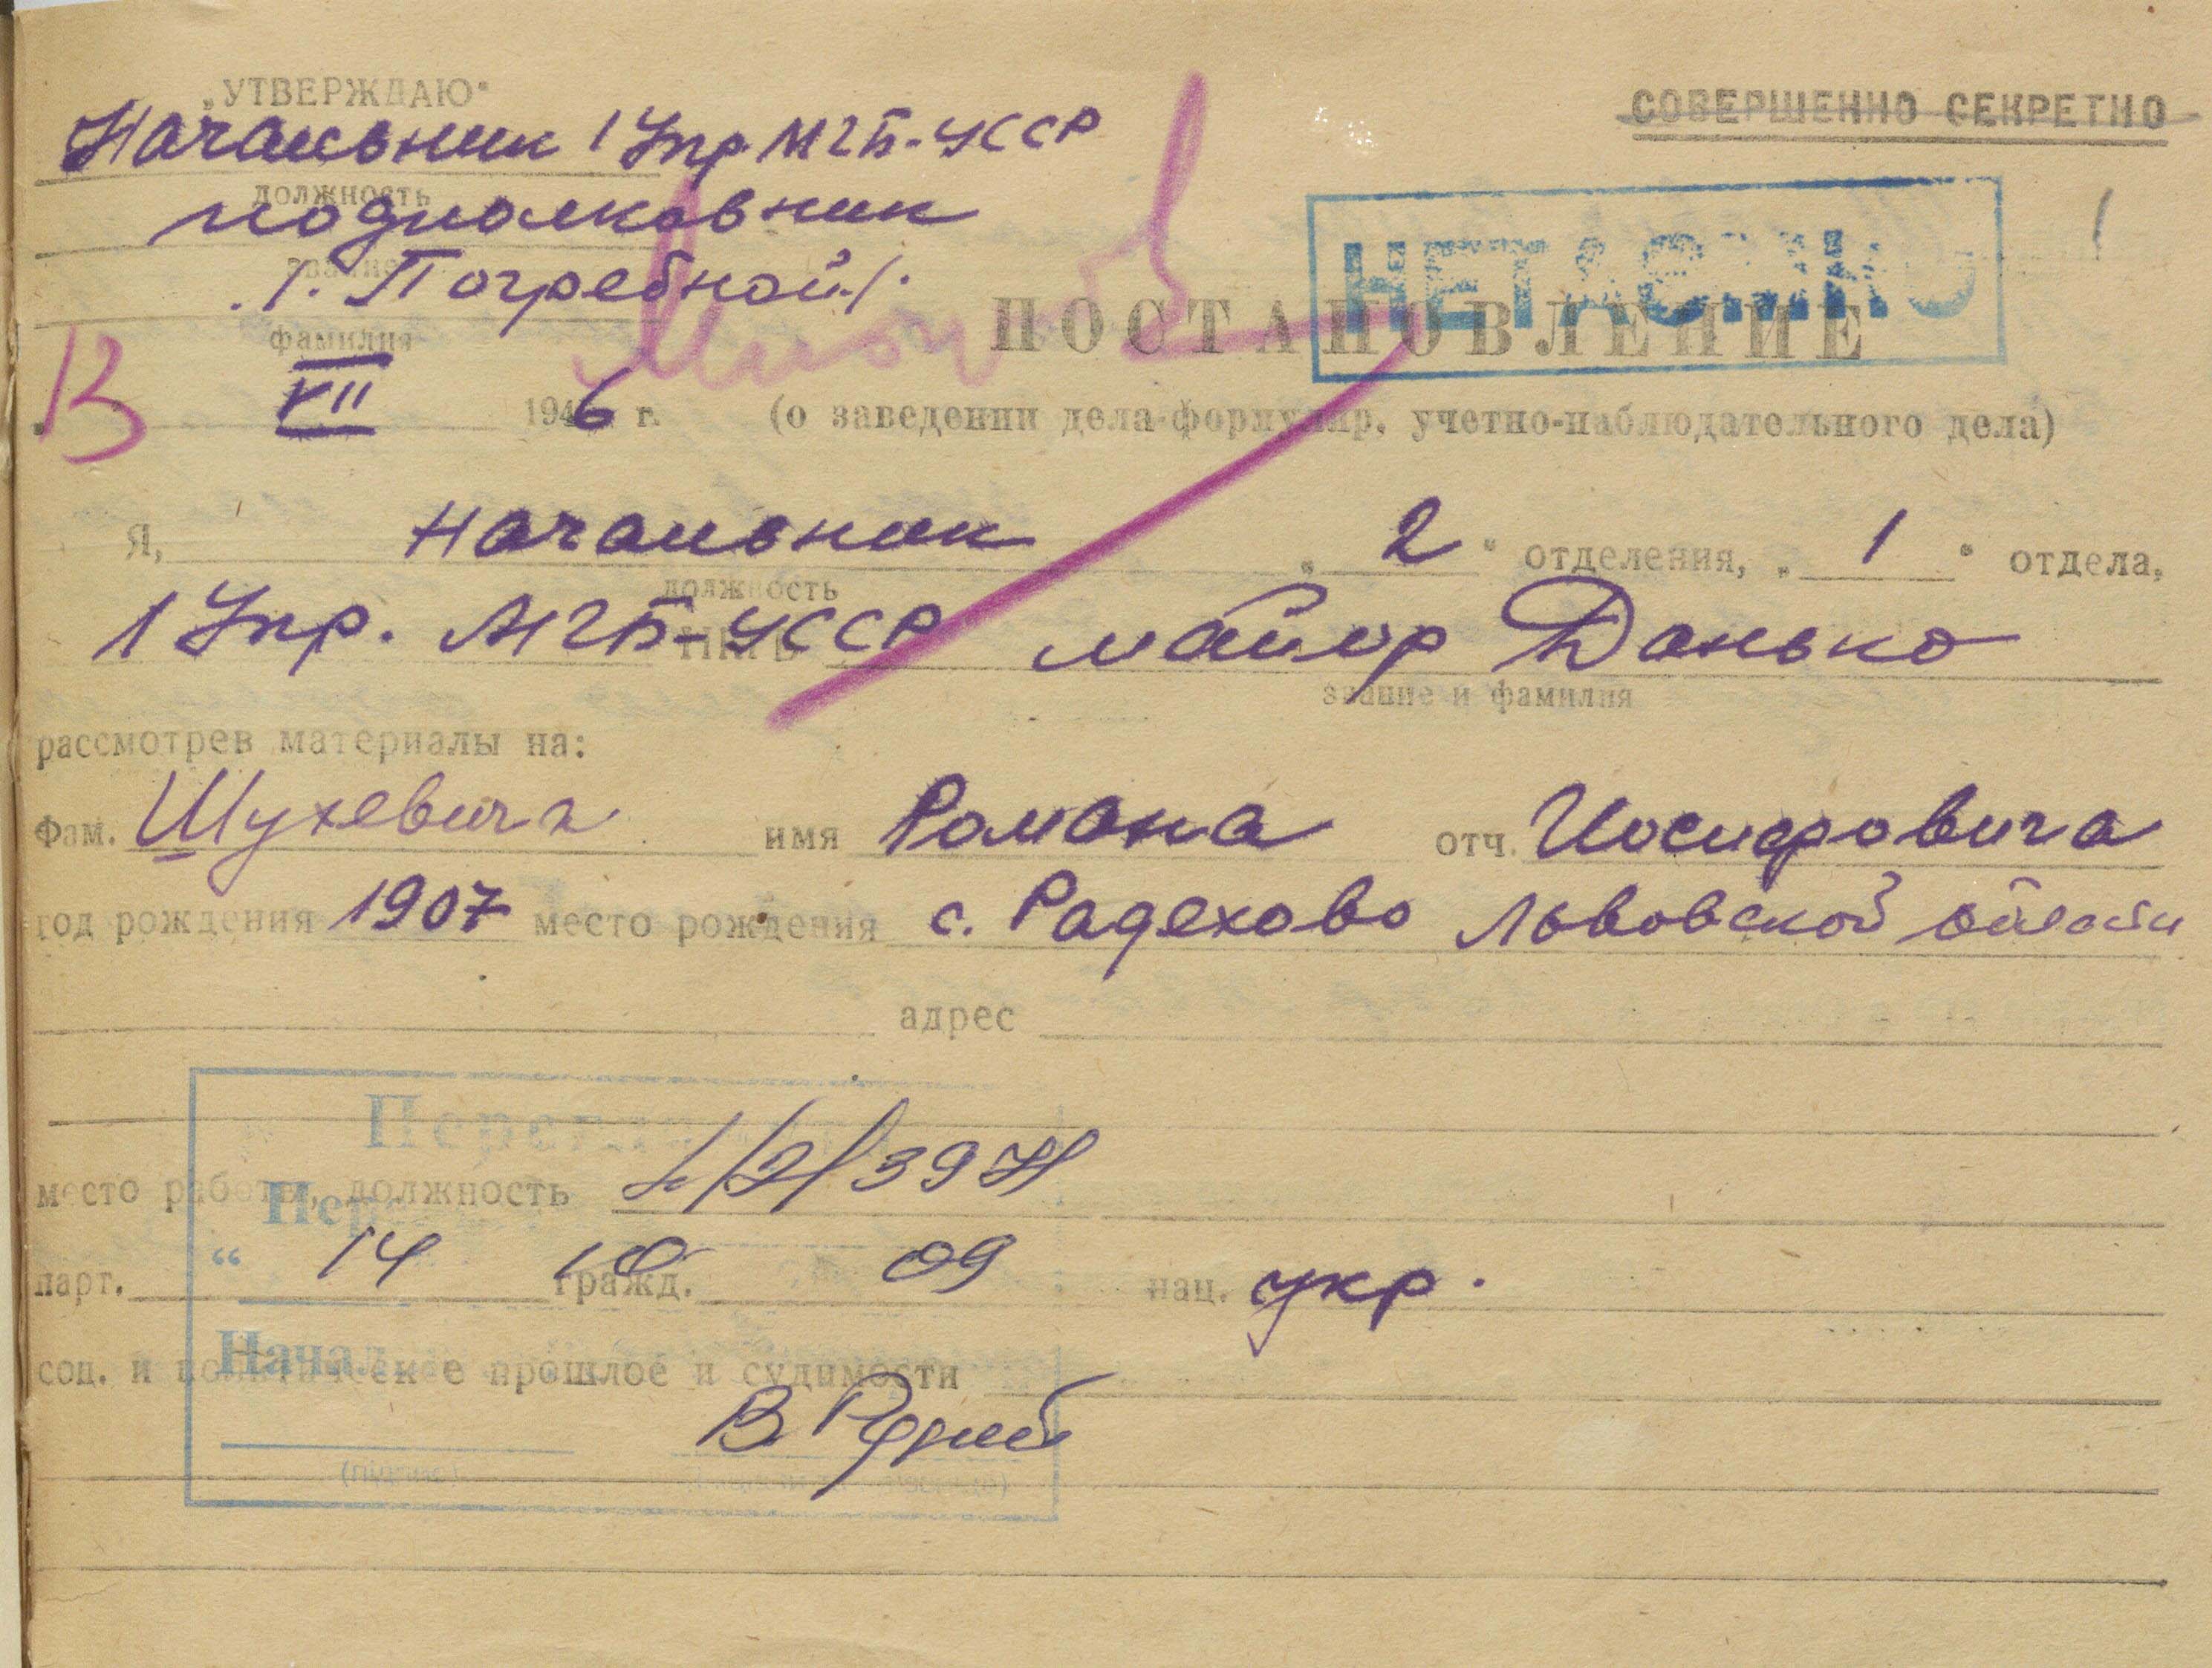 „УТВЕРЖДАЮ"
СОВЕРШЕННО СЕКРЕТНО
Начальник 1 Упр. МГБ-УССР
должность
подполковник
звание
/. Погребной./.
фамилия
НЕТАЄМНО
1
ПОСТАНОВЛЕНИЕ
13 VII 1946 г. (о заведении дела-формуляр, учетно-наблюдательного дела)
Я, Начальник „ 2 " отделения, „ 1 " отдела,
должность
1 Упр. МГБ-УССР НКГБ майор Данько
звание и фамилия
рассмотрев материалы на:
Фам. Шухевича имя Романа отч. Иосифовича
год рождения 1907 место рождения с. Радехово Львовской области
адрес
место работы, должность 1/2/397
парт. гражд. нац. укр.
“ 14 10 09
соц. и политическое прошлое и судимости
Начал
(підпис)